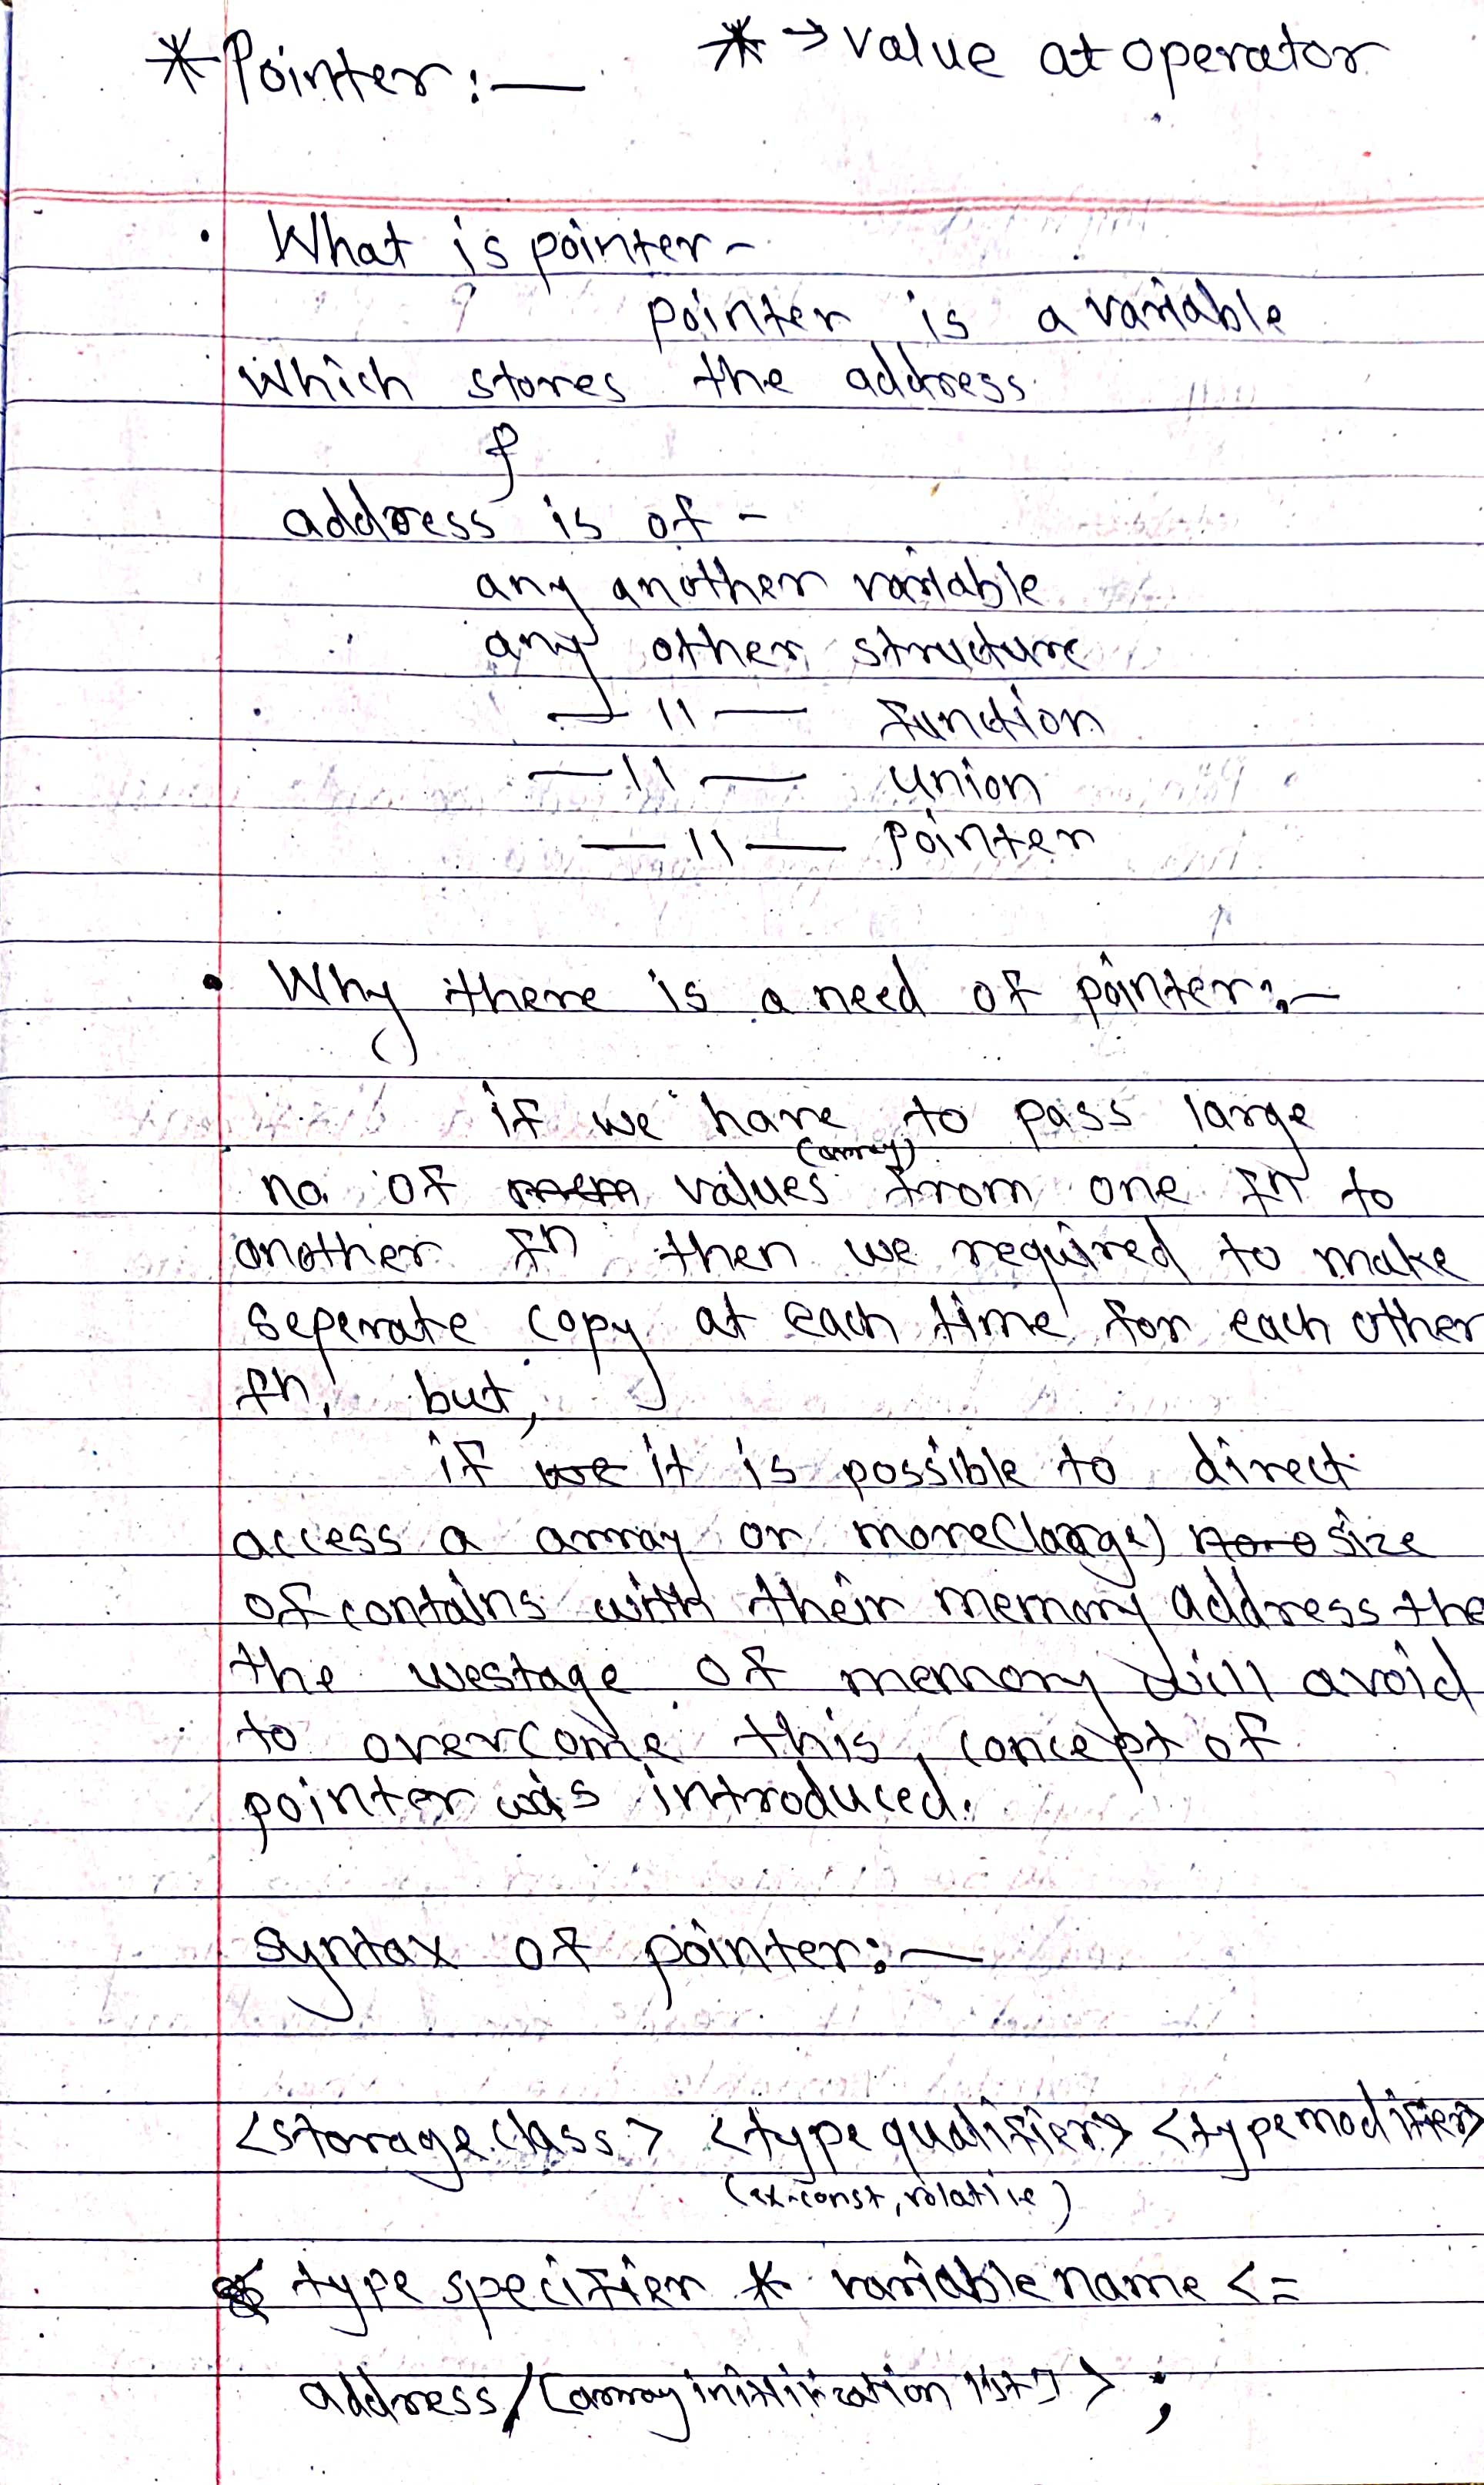 * Pointer :— * → value at operator
• What is pointer -
pointer is a variable
which stores the address
&
address is of -
any another variable
any other structure
— 11 — function
— 11 — union
— 11 — pointer
• Why there is a need of pointer :—
if we have to pass large
(array)
no. of values from one fn to
another fn then we required to make
seperate copy at each time for each other
fn. but,
if it is possible to direct
access a array or more(large) size
of contains with their memory address the
the westage of memory will avoid
to overcome this, concept of
pointer was introduced.
syntax of pointer :—
<storage class> <type qualifier> <type modifier>
(ex-const, volatile)
type specifier * variable name <=
address/[array initilization list]> ;